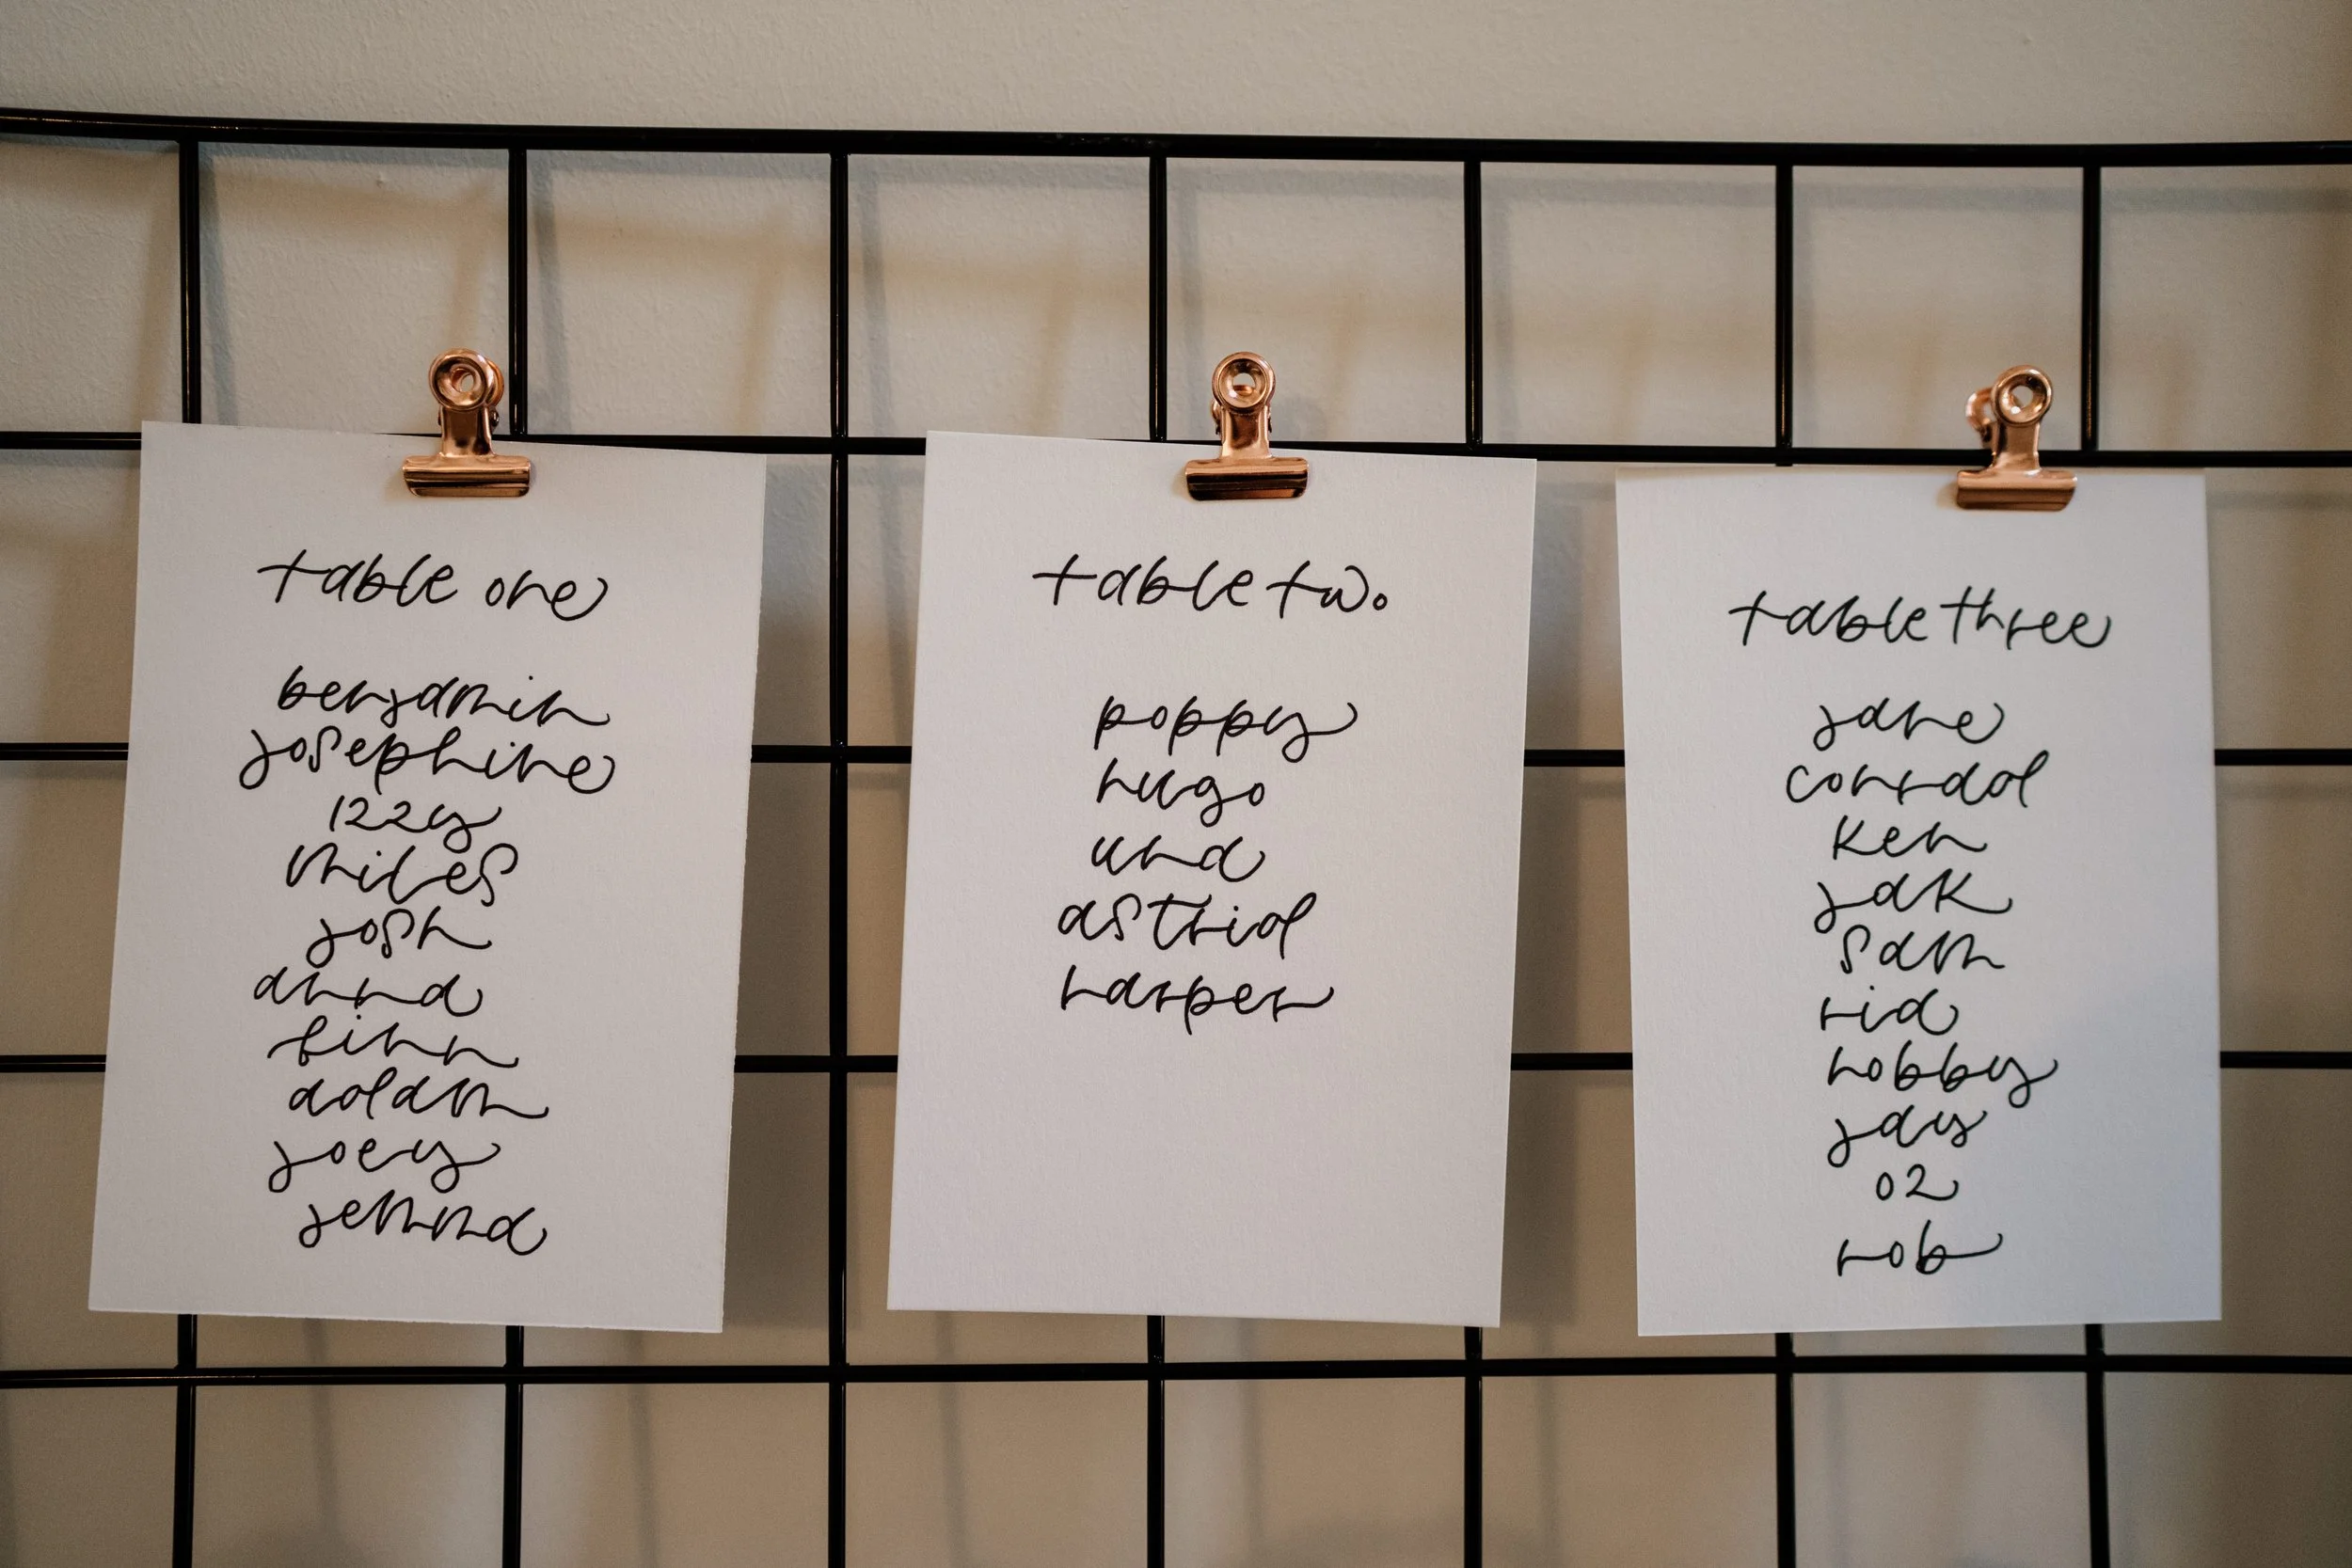 table one
benjamin
josephine
izzy
miles
josh
anna
finn
adam
joey
jemma
table two
poppy
hugo
una
astrid
harper
table three
jane
conrad
ken
jak
sam
rid
robby
jay
oz
rob